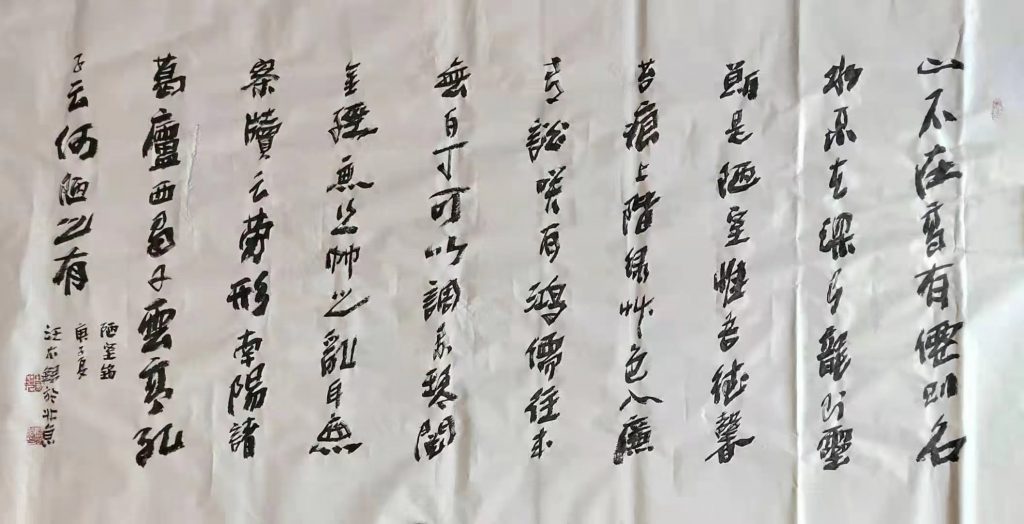 山不在高有僊則名
水不在深有龍則靈
斯是陋室惟吾德馨
苔痕上階綠艸色入簾
青談咲有鴻儒往來
無白丁可以調素琴閱
金經無絲竹之亂耳無
案牘之勞形南陽諸
葛廬西蜀子雲亭孔
子云何陋之有
陋室銘
庚子夏
汪於北京